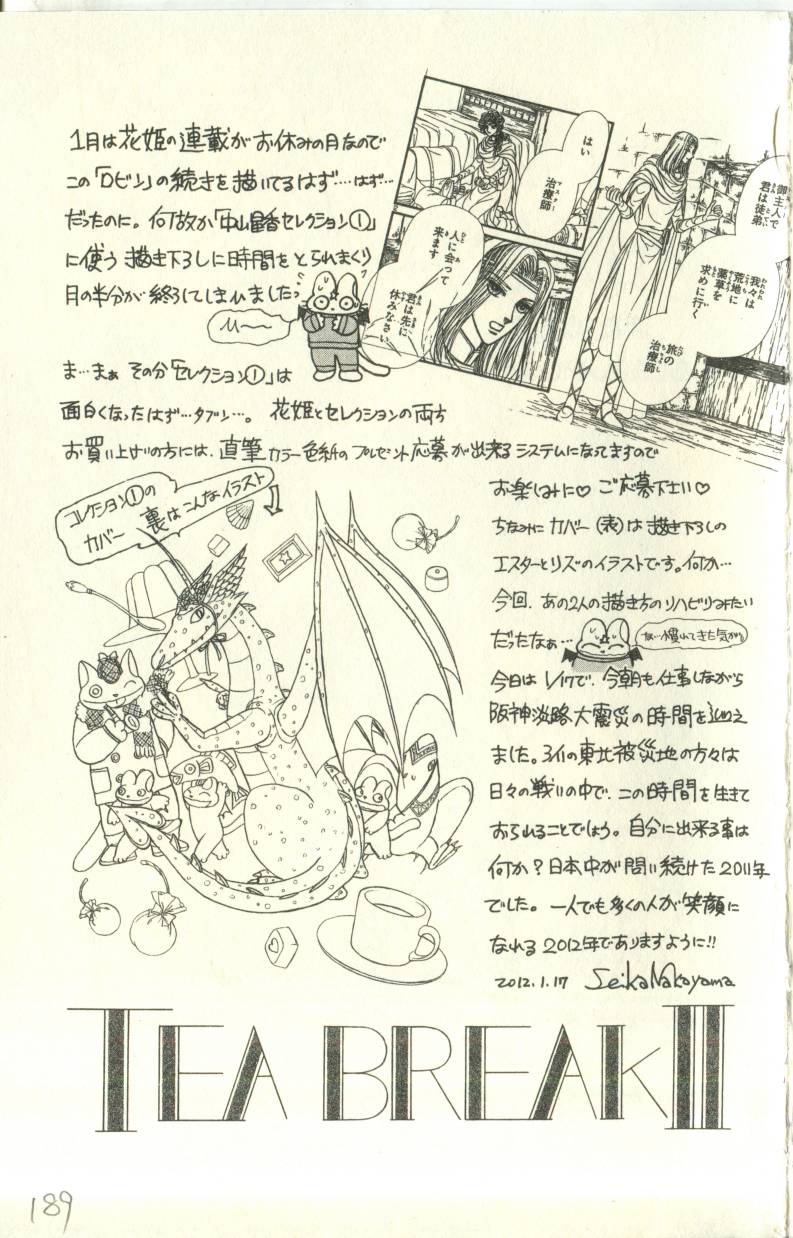 1月は花姫の連載がお休みの月なので
この「ロビン」の続きを描いてるはず…はず…
だったのに。何故か「中山星香セレクション①」
に使う描き下ろしに時間をとられまくり
月の半分が終了してしまいました。
ま…まぁ その分「セレクション①」は
面白くなったはず…タブン…。 花姫とセレクションの両方
お買い上げの方には、直筆カラー色紙のプレゼント応募が出来るシステムになってますので
お楽しみに♡ ご応募下さい♡
ちなみに カバー(表)は描き下ろしの
エスターとリズのイラストです。何か…
今回、あの2人の描き方のリハビリみたい
だったなぁ…
な…慣れてきた気が
今日は1/17で、今朝も仕事しながら
阪神淡路大震災の時間を迎え
ました。3/11の東北被災地の方々は
日々の戦いの中で、この時間を生きて
おられることでしょう。自分に出来る事は
何か?日本中が問い続けた2011年
でした。一人でも多くの人が笑顔に
なれる2012年でありますように!!
2012.1.17 Seika Nakayama
コレクション①の
カバー裏はこんなイラスト
はい
治療師
マスター
人に会って
来ます
君は先に
休みなさい
御主人で
君は徒弟
我々は
荒地に
薬草を
求めに行く
旅の
治療師
TEA BREAK III
189